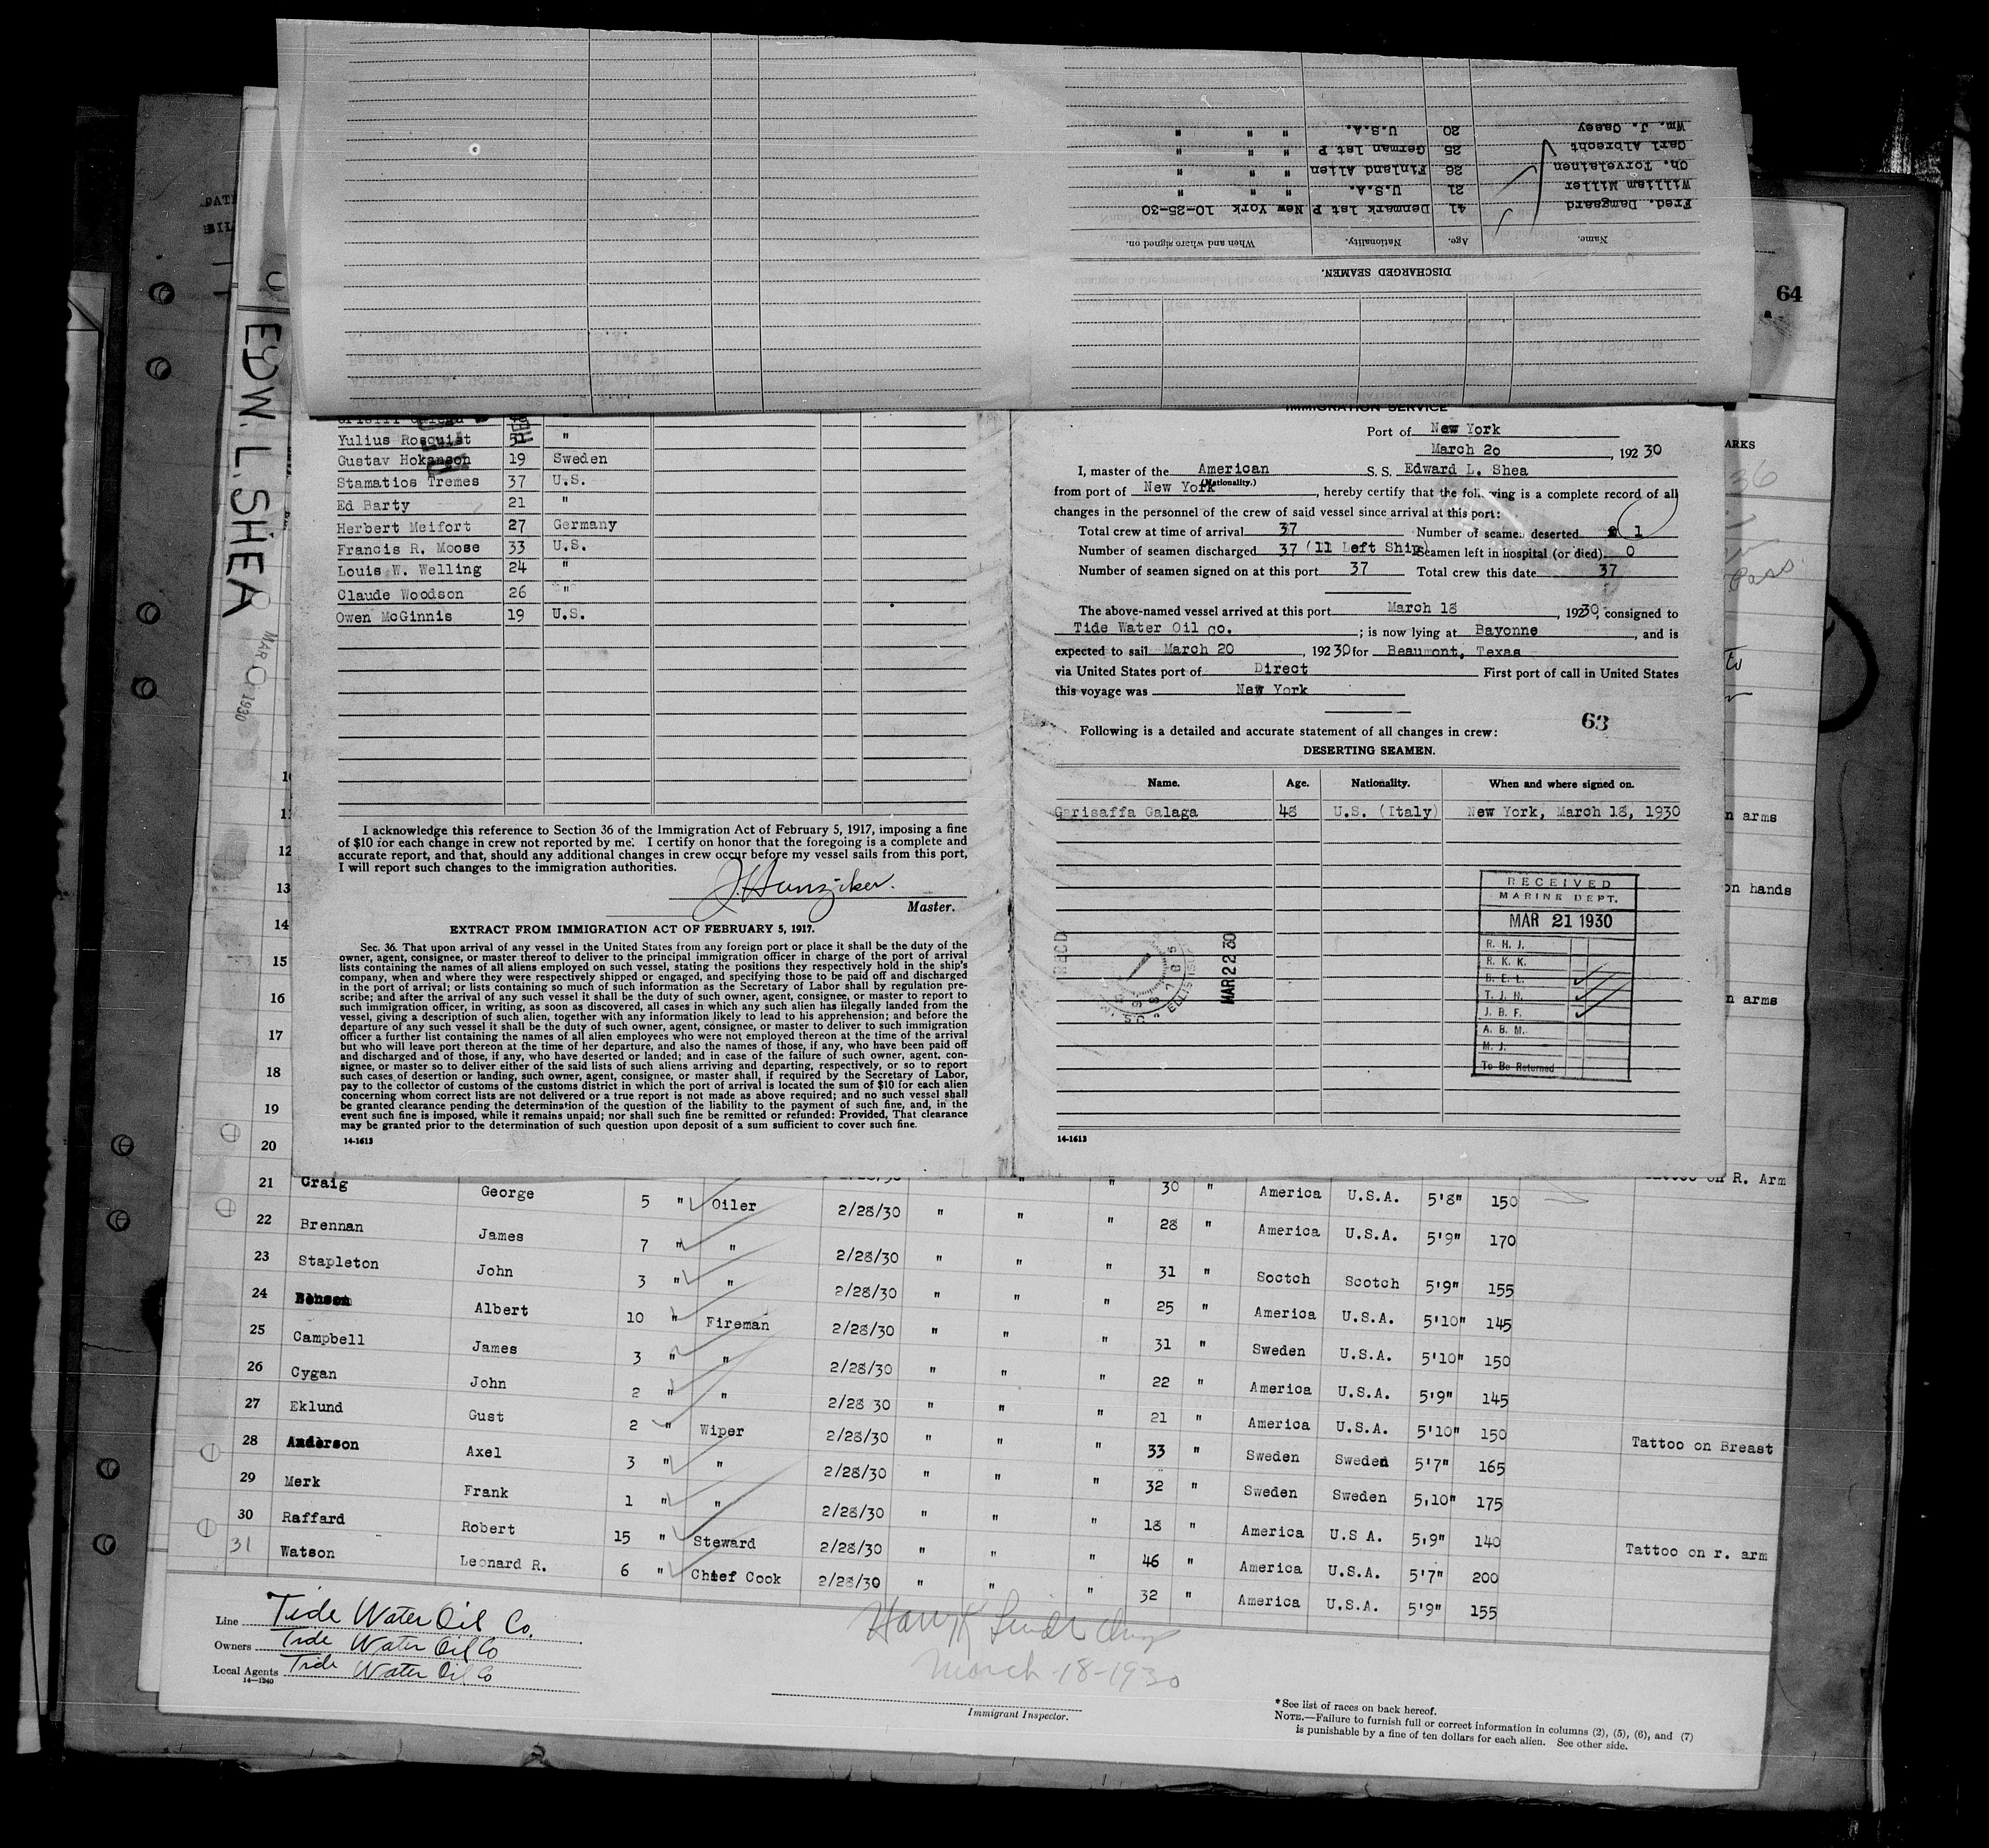 Wm. J. Casey 20 U.S.A. " " "
Carl Albrecht 25 German 1st P " " "
Ch. Torvelainen 26 Finland Alien " " "
William Miller 21 U.S.A. " " "
Fred. Damgaard 41 Denmark 1st P New York 10-25-30
Name. Age. Nationality. When and where signed on.
DISCHARGED SEAMEN.
64
EDW. L. SHEA
MAR 1930
Yulius Rosquist "
Gustav Hokanson 19 Sweden
Stamatios Tremes 37 U.S.
Ed Barty 21 "
Herbert Meifort 27 Germany
Francis R. Moose 33 U.S.
Louis W. Welling 24 "
Claude Woodson 26 "
Owen McGinnis 19 U.S.
I acknowledge this reference to Section 36 of the Immigration Act of February 5, 1917, imposing a fine
of $10 for each change in crew not reported by me. I certify on honor that the foregoing is a complete and
accurate report, and that, should any additional changes in crew occur before my vessel sails from this port,
I will report such changes to the immigration authorities.
J. Hunziker.
Master.
EXTRACT FROM IMMIGRATION ACT OF FEBRUARY 5, 1917.
Sec. 36. That upon arrival of any vessel in the United States from any foreign port or place it shall be the duty of the
owner, agent, consignee, or master thereof to deliver to the principal immigration officer in charge of the port of arrival
lists containing the names of all aliens employed on such vessel, stating the positions they respectively hold in the ship's
company, when and where they were respectively shipped or engaged, and specifying those to be paid off and discharged
in the port of arrival; or lists containing so much of such information as the Secretary of Labor shall by regulation pre-
scribe; and after the arrival of any such vessel it shall be the duty of such owner, agent, consignee, or master to report to
such immigration officer, in writing, as soon as discovered, all cases in which any such alien has illegally landed from the
vessel, giving a description of such alien, together with any information likely to lead to his apprehension; and before the
departure of any such vessel it shall be the duty of such owner, agent, consignee, or master to deliver to such immigration
officer a further list containing the names of all alien employees who were not employed thereon at the time of the arrival
but who will leave port thereon at the time of her departure, and also the names of those, if any, who have been paid off
and discharged and of those, if any, who have deserted or landed; and in case of the failure of such owner, agent, con-
signee, or master so to deliver either of the said lists of such aliens arriving and departing, respectively, or so to report
such cases of desertion or landing, such owner, agent, consignee, or master shall, if required by the Secretary of Labor,
pay to the collector of customs of the customs district in which the port of arrival is located the sum of $10 for each alien
concerning whom correct lists are not delivered or a true report is not made as above required; and no such vessel shall
be granted clearance pending the determination of the question of the liability to the payment of such fine, and, in the
event such fine is imposed, while it remains unpaid; nor shall such fine be remitted or refunded: Provided, That clearance
may be granted prior to the determination of such question upon deposit of a sum sufficient to cover such fine.
14-1613
IMMIGRATION SERVICE
Port of New York
March 20, 1930
I, master of the American S. S. Edward L. Shea
(Nationality.)
from port of New York, hereby certify that the following is a complete record of all
changes in the personnel of the crew of said vessel since arrival at this port:
Total crew at time of arrival 37 Number of seamen deserted 1
Number of seamen discharged 37 (11 Left Ship) Seamen left in hospital (or died) 0
Number of seamen signed on at this port 37 Total crew this date 37
The above-named vessel arrived at this port March 18, 1930, consigned to
Tide Water Oil co.; is now lying at Bayonne, and is
expected to sail March 20, 19230 for Beaumont, Texas
via United States port of Direct First port of call in United States
this voyage was New York
63
Following is a detailed and accurate statement of all changes in crew:
DESERTING SEAMEN.
Name. Age. Nationality. When and where signed on.
Garisaffa Galaga 48 U.S. (Italy) New York, March 18, 1930
RECEIVED
MARINE DEPT.
MAR 21 1930
R. H. J.
R. K. K.
B. E. L.
T. J. H.
J. B. F.
A. B. M.
M. J.
To Be Returned
REC'D
MAR 22 30
ELLIS ISL
14-1613
ARKS
36
Pass
n arms
on hands
n arms
10
11
12
13
14
15
16
17
18
19
20
Tattoo on R. Arm
21 Craig George 5 " Oiler 2/28/30 " " " 30 " America U.S.A. 5'8" 150
22 Brennan James 7 " " 2/28/30 " " " 28 " America U.S.A. 5'9" 170
23 Stapleton John 3 " " 2/28/30 " " " 31 " Soctch Scotch 5'9" 155
24 Benson Albert 10 " Fireman 2/28/30 " " " 25 " America U.S.A. 5'10" 145
25 Campbell James 3 " " 2/28/30 " " " 31 " Sweden U.S.A. 5'10" 150
26 Cygan John 2 " " 2/28 30 " " " 22 " America U.S.A. 5'9" 145
27 Eklund Gust 2 " Wiper 2/28/30 " " " 21 " America U.S.A. 5'10" 150
28 Anderson Axel 3 " " 2/28/30 " " " 33 " Sweden Sweden 5'7" 165 Tattoo on Breast
29 Merk Frank 1 " " 2/28/30 " " " 32 " Sweden Sweden 5,10" 175
30 Raffard Robert 15 " Steward 2/28/30 " " " 18 " America U.S A. 5,9" 140
31 Watson Leonard R. 6 " Chief Cook 2/28/30 " " " 46 " America U.S.A. 5'7" 200 Tattoo on r. arm
32 " America U.S.A. 5'9" 155
Line Tide Water Oil Co.
Owners Tide Water Oil Co
Local Agents Tide Water Oil Co
14-1240
March-18-1930
Immigrant Inspector.
*See list of races on back hereof.
NOTE.—Failure to furnish full or correct information in columns (2), (5), (6), and (7)
is punishable by a fine of ten dollars for each alien. See other side.